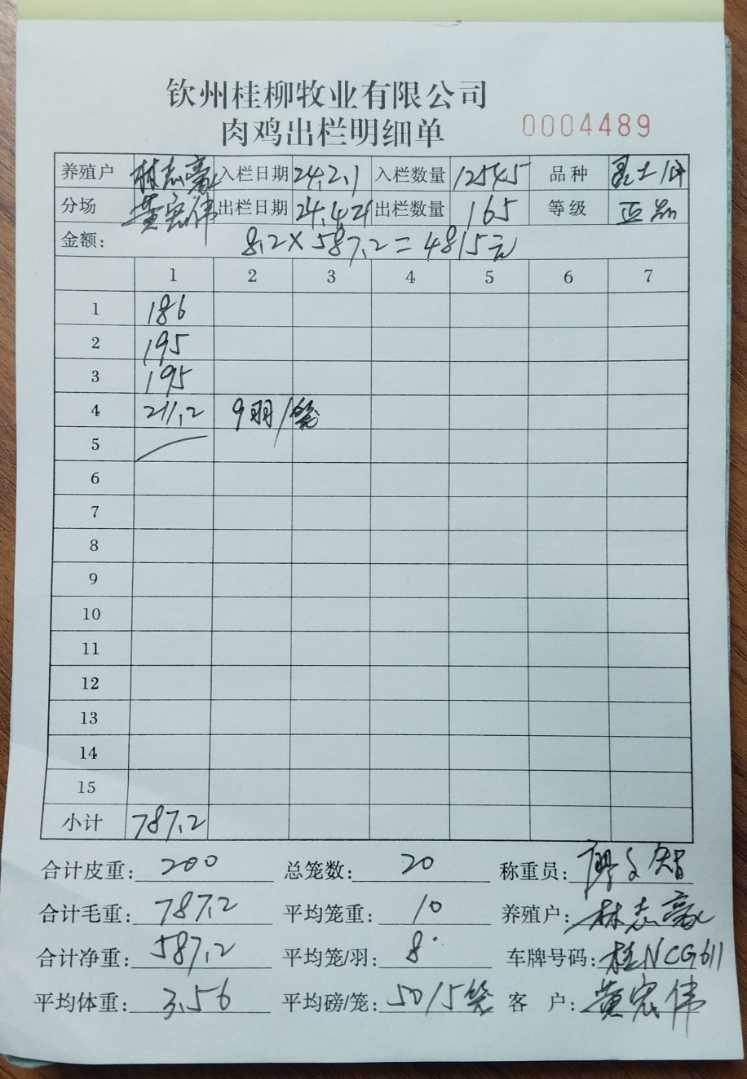 钦州桂柳牧业有限公司
肉鸡出栏明细单 0004489
养殖户 林志豪 入栏日期 24.2.1 入栏数量 12545 品种
分场 黄宏伟 出栏日期 24.4.21 出栏数量 165 等级
金额: 8.2×587.2=4815元
1 2 3 4 5 6 7
1 186
2 195
3 195
4 211.2 9羽/笼
5
6
7
8
9
10
11
12
13
14
15
小计 787.2
合计皮重: 200 总笼数: 20 称重员: 廖文智
合计毛重: 787.2 平均笼重: 10 养殖户: 林志豪
合计净重: 587.2 平均笼/羽: 8 车牌号码: 桂NCG611
平均体重: 3.56 平均磅/笼: 50/5笼 客 户: 黄宏伟